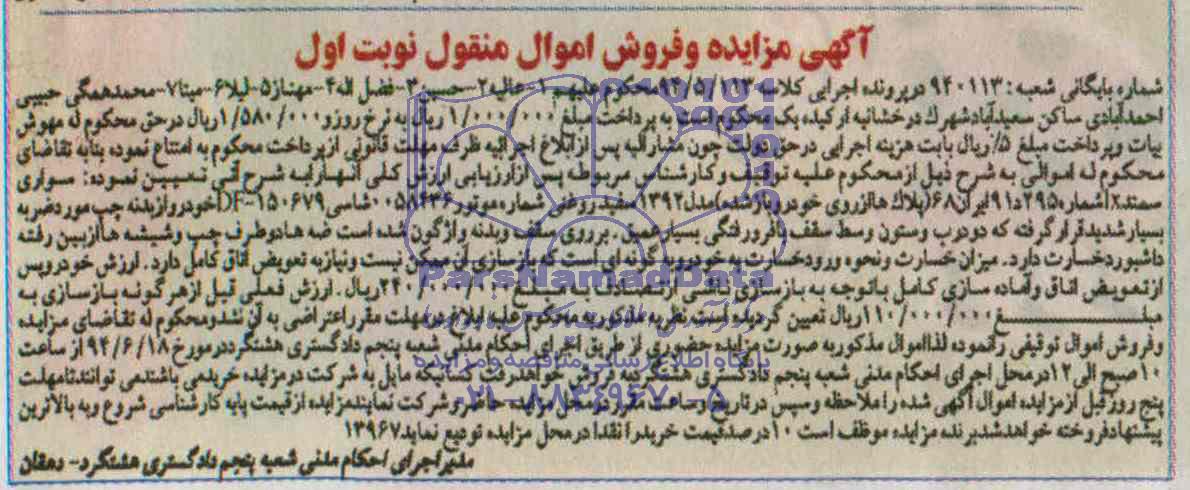 آگهی مزایده وفروش اموال منقول نوبت اول
شماره بایگانی شعبه: ۹۴۰۱۱۳ درپرونده اجرایی کلاسه ۹۴/۵/۱۱۳ محکوم علیهم ۱-عالیه۲-حسین۳-فضل اله۴-مهناز۵-لیلا۶-مینا۷-محمدهمگی حبیبی
احمدآبادی ساکن سعیدآبادشهرک درخشانیه ارکیده یک محکوم است به پرداخت مبلغ ۱/۰۰۰/۰۰۰ ریال به نرخ روزو ۱/۵۸۰/۰۰۰ریال درحق محکوم له مهوش
بیات وپرداخت مبلغ ۵٪ ریال بابت هزینه اجرایی درحق دولت چون مشارالیه پس ازابلاغ اجرائیه ظرف مهلت قانونی ازپرداخت محکوم به امتناع نموده بنابه تقاضای
محکوم له اموالی به شرح ذیل ازمحکوم علیه توقیف وکارشناس مربوطه پس ازارزیابی ارزش کلی آنهارابه شرح آتی تعیین نموده: سواری
سمند شماره۲۹۵د۹۱ایران۶۸(پلاک هاازروی خودروبازشده)مدل۱۳۹۲سفیدروغنی شماره موتور شاسی خودروازبدنه چپ موردضربه
بسیارشدیدقرارگرفته که دودرب وستون وسط سقف بافرورفتگی بسیارعمیق. برروی سقف وبدنه واژگون شده است شه هادوطرف چپ وشیشه هاازبین رفته
داشبوردخسارت دارد. میزان خسارت ونحوه ورودخسارت به خودروبه گونه ای است که بازسازی آن ممکن نیست ونیازبه تعویض اتاق کامل دارد. ارزش خودروپس
ازتعویض اتاق وآماده سازی کامل باتوجه به بازسازی وافتی ازتصادف به مبلغ ۲۴۰/۰۰۰/۰۰۰ریال. ارزش فعلی قبل ازهرگونه بازسازی به
مبلغ۱۱۰/۰۰۰/۰۰۰ریال تعیین گردیده است نظریه مذکوربه محکوم علیه ابلاغ درمهلت مقرراعتراضی به آن نشدومحکوم له تقاضای مزایده
وفروش اموال توقیفی رانموده لذااموال مذکوربه صورت مزایده حضوری از طریق اجرای احکام مدنی شعبه پنجم دادگستری هشتگرددرمورخ ۹۴/۶/۱۸ از ساعت
۱۰صبح الی۱۲درمحل اجرای احکام مدنی شعبه پنجم دادگستری هشتگردبه فروش کسانیکه مایل به شرکت درمزایده خریدمی باشندمی توانندتامهلت
پنج روزقبل ازمزایده اموال آگهی شده راملاحظه وسپس درتاریخ وساعت مقرردرمحل مزایده حاضروشرکت نمایندمزایده ازقیمت پایه کارشناسی شروع وبه بالاترین
پیشنهادفروخته خواهدشدبرنده مزایده موظف است ۱۰درصدقیمت خریدرانقدا درمحل مزایده تودیع نماید۱۳۹۶۷
مدیراجرای احکام مدنی شعبه پنجم دادگستری هشتگرد- دهقان
ParsNamadData
پایگاه اطلاع رسانی مناقصه ومزایده
۰۲۱-۸۸۳۴۹۶۷۰-۵